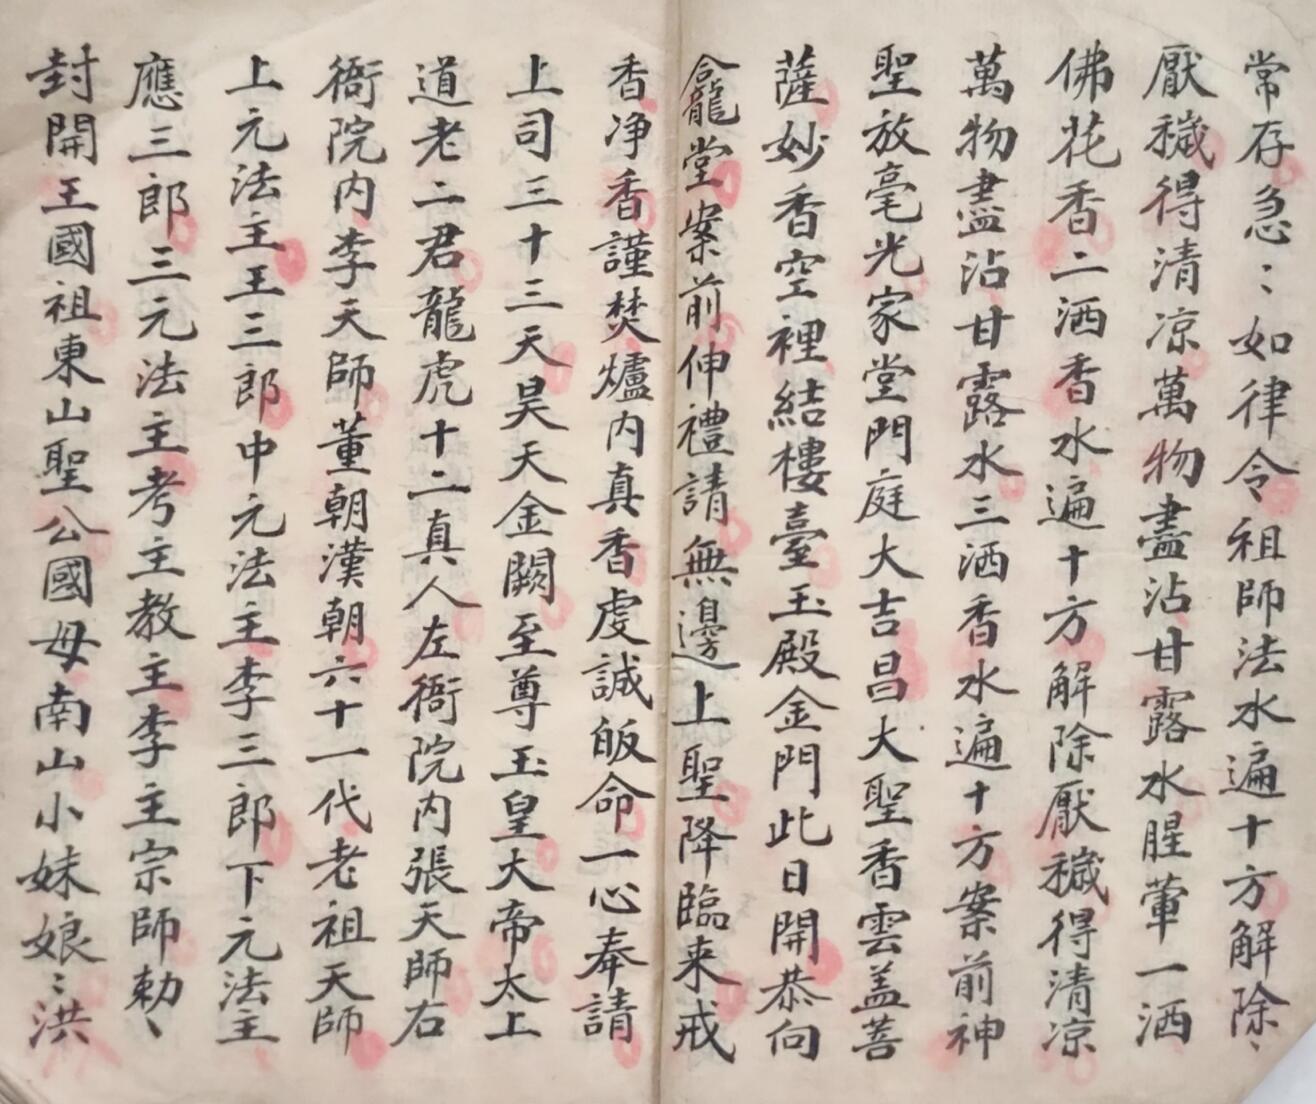 常存急〻如律令祖師法水遍十方解除〻
厭穢得清凉萬物盡沾甘露水腥葷一洒
佛花香二洒香水遍十方解除厭穢得清凉
萬物盡沾甘露水三洒香水遍十方案前神
聖放毫光家堂門庭大吉昌大聖香雲盖菩
薩妙香空裡結樓臺玉殿金門此日開恭向
龕堂案前伸禮請無邊上聖降臨来戒
香净香謹焚爐内真香虔誠皈命一心奉請
上司三十三天昊天金闕至尊玉皇大帝太上
道老二君龍虎十二真人左衙院内張天師右
衙院内李天師董朝漢朝六十一代老祖天師
上元法主王三郎中元法主李三郎下元法主
應三郎三元法主考主教主李主宗師勅〻
封開王國祖東山聖公國母南山小妹娘〻洪